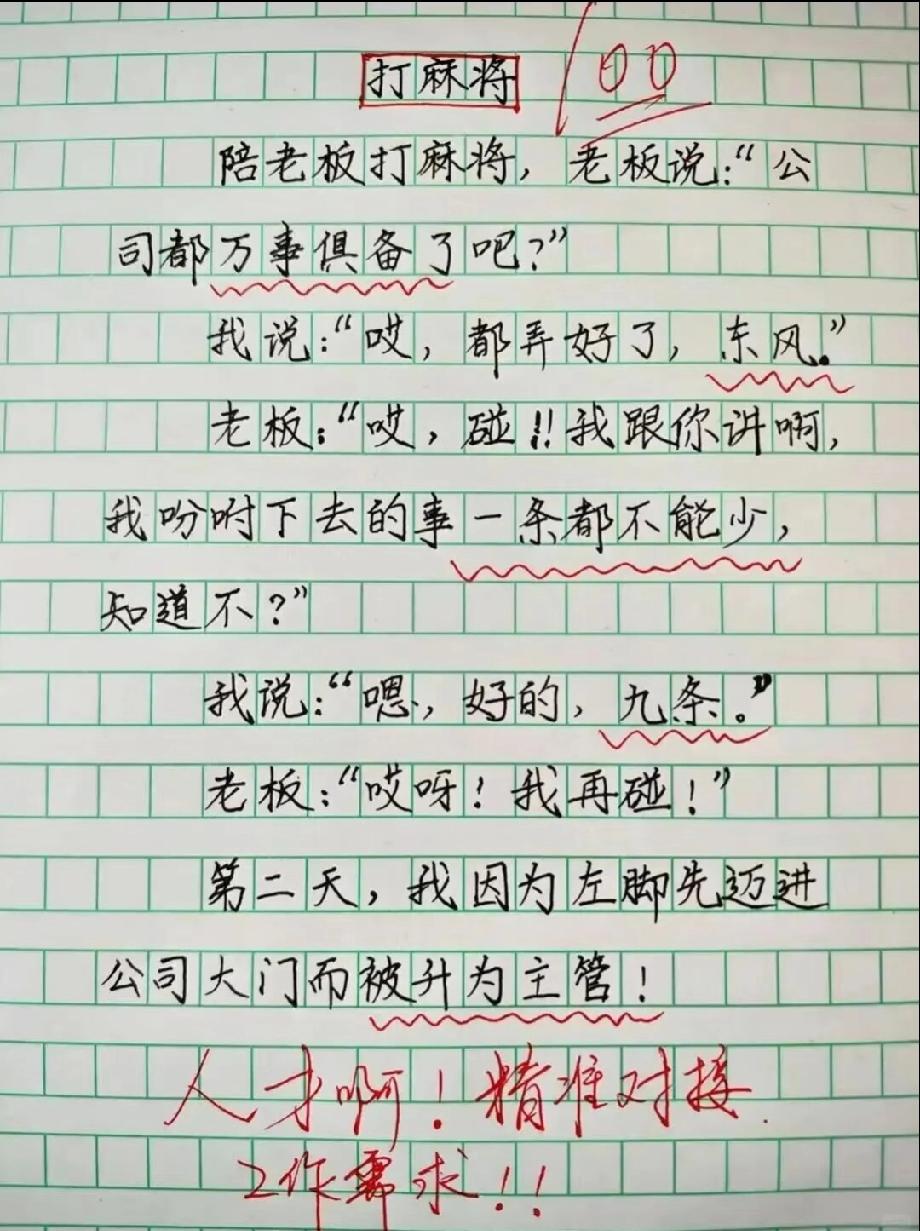 打麻将
100
陪老板打麻将，老板说：“公
司都万事俱备了吧？”
我说：“哎，都弄好了，东风。”
老板：“哎，碰！！我跟你讲啊，
我吩咐下去的事一条都不能少，
知道不？”
我说：“嗯，好的，九条。”
老板：“哎呀！我再碰！”
第二天，我因为左脚先迈进
公司大门而被升为主管！
人才啊！精准对接
工作需求！！